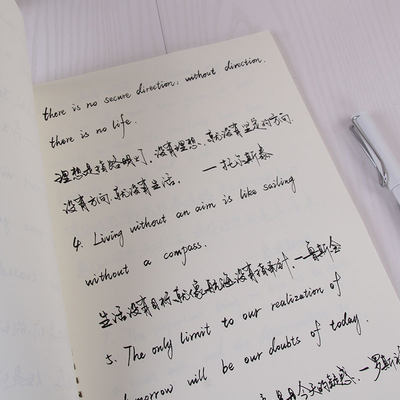 there is no secure direction; without direction.
there is no life.
理想是指路明灯。没有理想，就没有坚定的方向.
没有方向.就没有生活。 —托尔斯泰
4. Living without an aim is like sailing
without a compass.
生活没有目标，就像航海没有指南针. —鲁斯金
5. The only limit to our realization of
tomorrow will be our doubts of today.
是今天的疑惑. —罗斯福